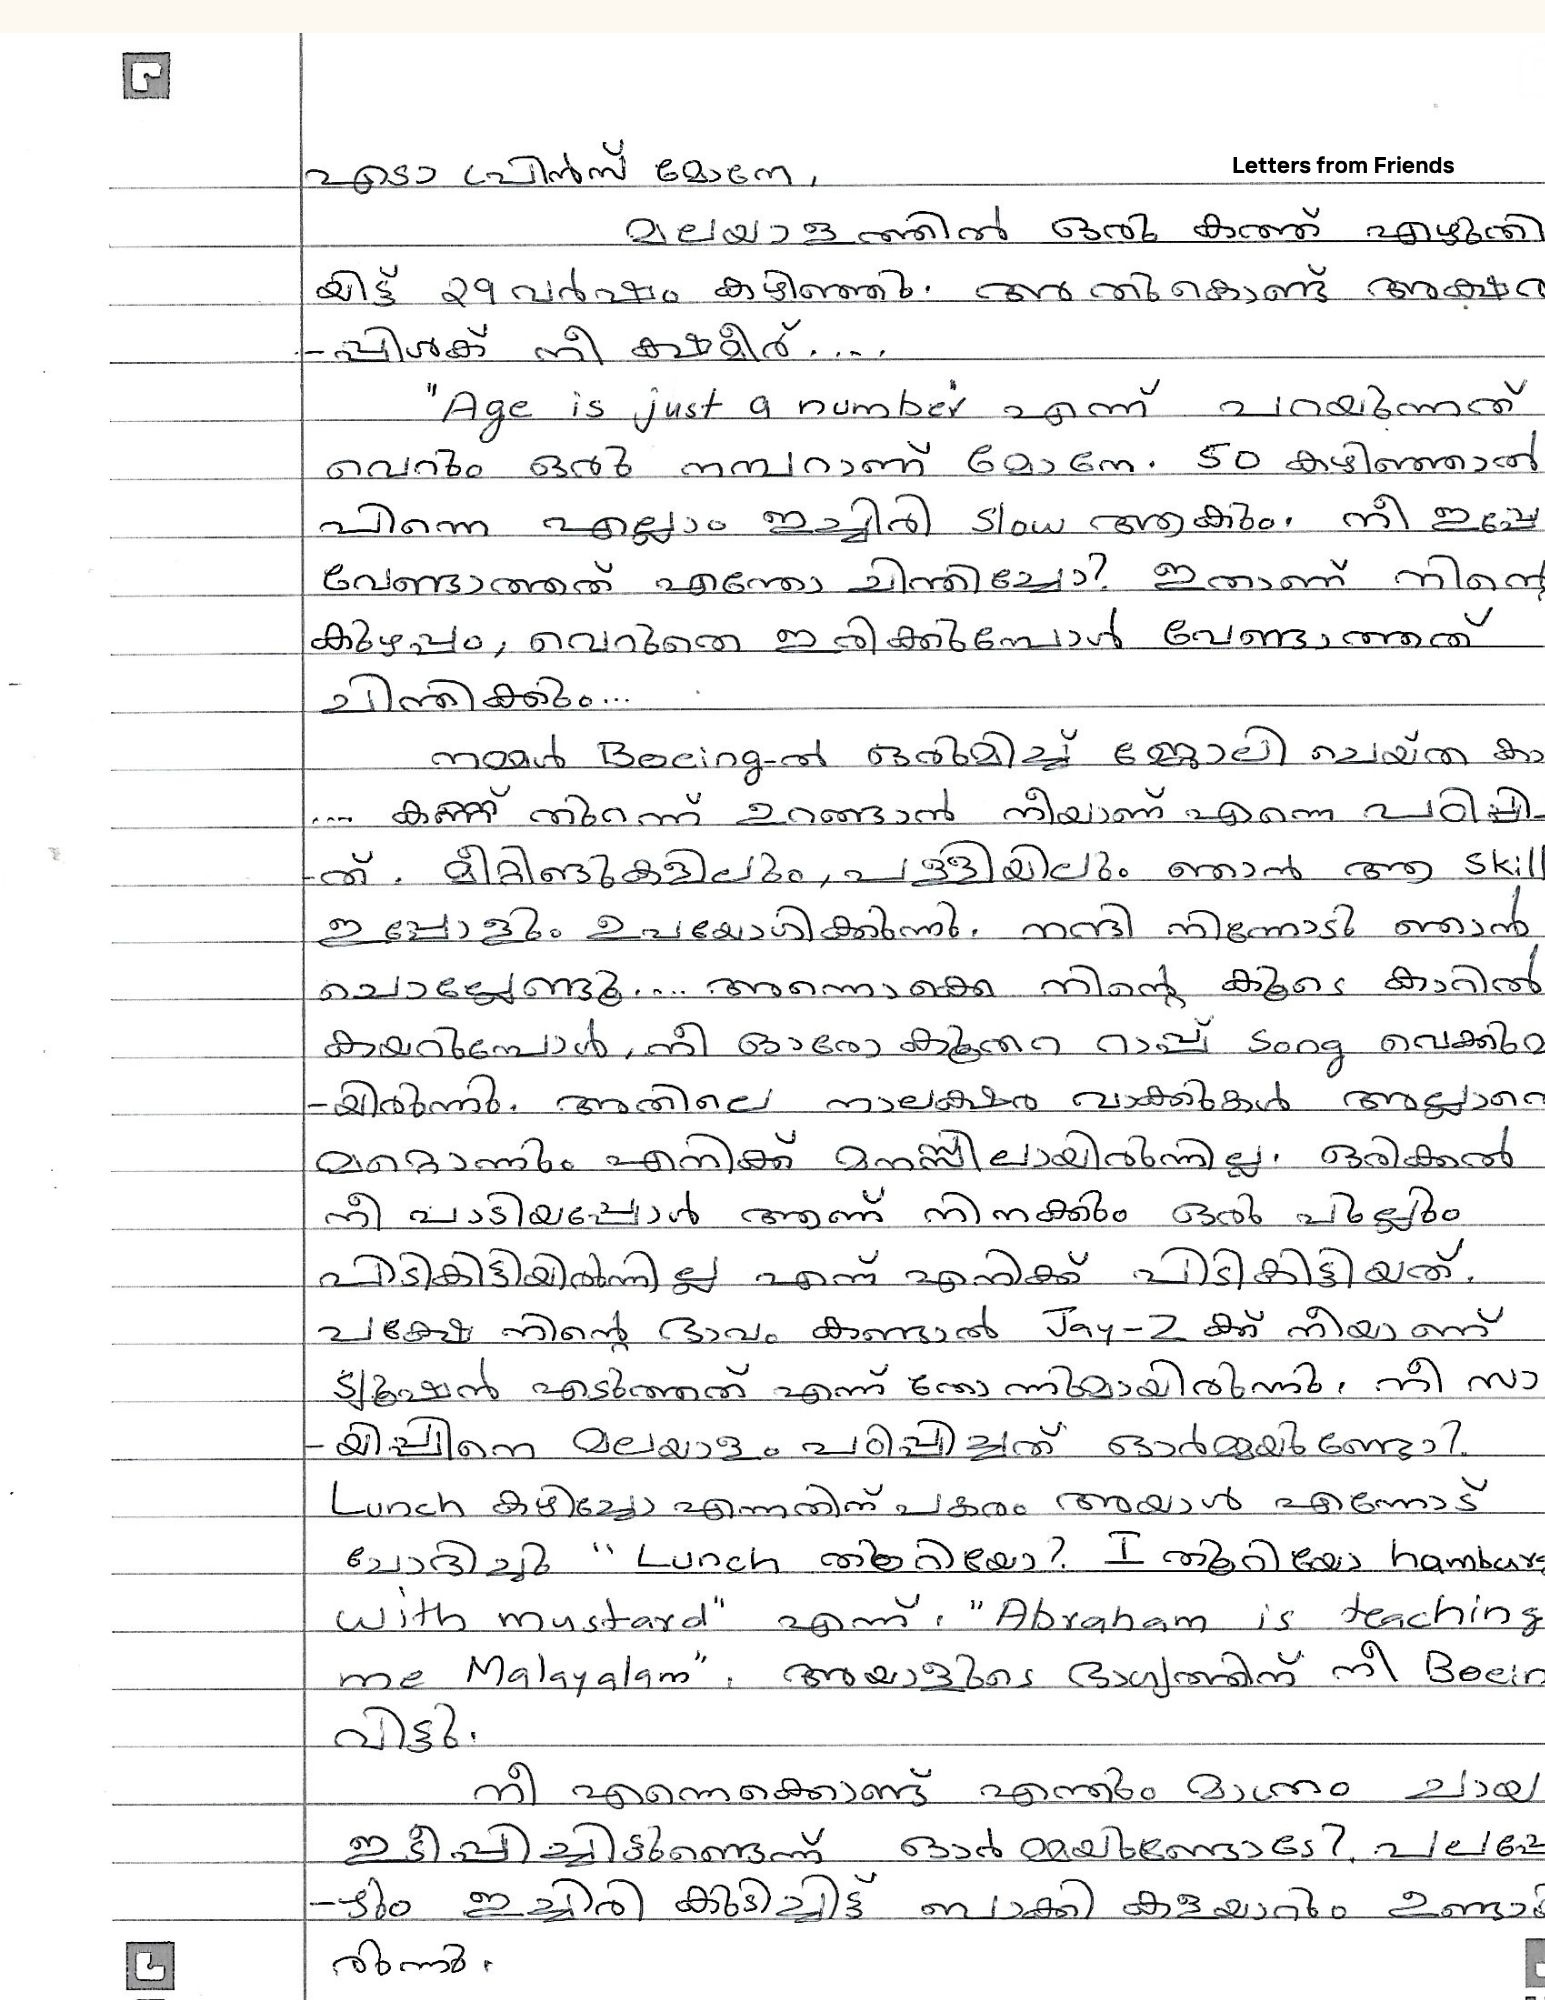 എടാ പ്രിൻസ് മോനേ,
Letters from Friends
മലയാളത്തിൽ ഒരു കത്ത് എഴുതി
യിട്ട് 29 വർഷം കഴിഞ്ഞു. അതുകൊണ്ട് അക്ഷര
-പിശക് നീ ക്ഷമീര്.....
"Age is just a number" എന്ന് പറയുന്നത്
വെറും ഒരു നമ്പറാണ് മോനേ. 50 കഴിഞ്ഞാൽ
പിന്നെ എല്ലാം ഇച്ചിരി slow ആകും. നീ ഇപ്പേ
വേണ്ടാത്തത് എന്തോ ചിന്തിച്ചോ? ഇതാണ് നിന്റെ
കുഴപ്പം, വെറുതെ ഇരിക്കുമ്പോൾ വേണ്ടാത്തത്
ചിന്തിക്കും...
നമ്മൾ Boeing-ൽ ഒരുമിച്ച് ജോലി ചെയ്ത കാ
.... കണ്ണ് തുറന്ന് ഉറങ്ങാൻ നീയാണ് എന്നെ പഠിപ്പി-
-ത്. മീറ്റിങ്ങുകളിലും, പള്ളിയിലും ഞാൻ ആ skill
ഇപ്പോളും ഉപയോഗിക്കുന്നു. നന്ദി നിന്നോടു ഞാൻ
ചൊല്ലേണ്ടൂ.... അന്നൊക്കെ നിന്റെ കൂടെ കാറിൽ
കയറുമ്പോൾ, നീ ഓരോ കൂതറ റാപ്പ് song വെക്കുമ
-യിരുന്നു. അതിലെ നാലക്ഷര വാക്കുകൾ അല്ലാതെ
മറ്റൊന്നും എനിക്ക് മനസ്സിലായിരുന്നില്ല. ഒരിക്കൽ
നീ പാടിയപ്പോൾ ആണ് നിനക്കും ഒരു പുല്ലും
പിടികിട്ടിയിരുന്നില്ല എന്ന് എനിക്ക് പിടികിട്ടിയത്.
പക്ഷേ നിന്റെ ഭാവം കണ്ടാൽ Jay-Z ക്ക് നീയാണ്
ട്യൂഷൻ എടുത്തത് എന്ന് തോന്നുമായിരുന്നു. നീ സാ
-യിപ്പിനെ മലയാളം പഠിപ്പിച്ചത് ഓർമ്മയുണ്ടോ?
Lunch കഴിച്ചോ എന്നതിന് പകരം അയാൾ എന്നോട്
ചോദിച്ചു "Lunch തൂറിയോ? I തൂറിയോ hamburg
with mustard" എന്ന്. "Abraham is teaching
me Malayalam". അയാളുടെ ഭാഗ്യത്തിന് നീ Boein
വിട്ടു.
നീ എന്നെക്കൊണ്ട് എന്തും മാത്രം ചായ
ഇടീപ്പിച്ചിട്ടുണ്ടെന്ന് ഓർമ്മയുണ്ടോടേ? പലപ്പേ
-ഴും ഇച്ചിരി കുടിച്ചിട്ട് ബാക്കി കളയാറും ഉണ്ടായി
രുന്നു.